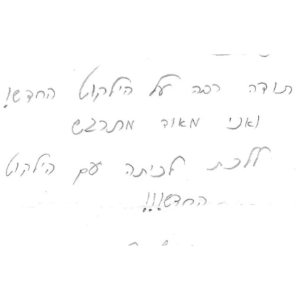 תודה רבה על הילקוט החדש!
ואני מאוד מתרגש
ללכת לכיתה עם הילקוט
החדש!!!